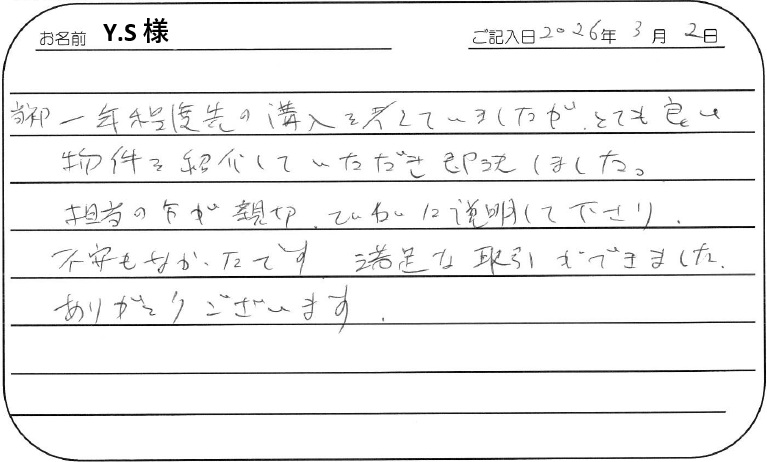 お名前 Y.S 様 ご記入日 2026年 3月 2日
当初一年程度先の購入を考えていましたが、とても良い
物件を紹介していただき即決しました。
担当の方が親切、ていねいに説明して下さり、
不安もなかったです 満足な取引ができました.
ありがとうございます.